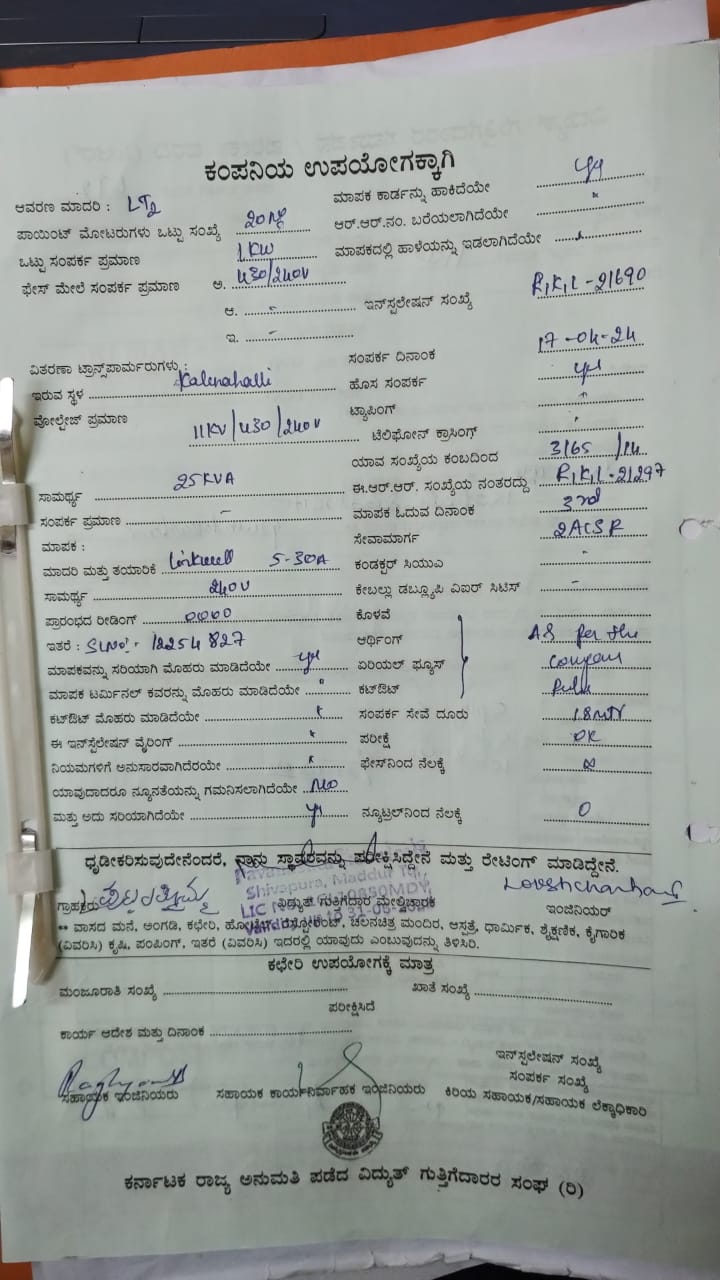 ಕಂಪನಿಯ ಉಪಯೋಗಕ್ಕಾಗಿ
ಆವರಣ ಮಾದರಿ : LT2
ಮಾಪಕ ಕಾರ್ಡನ್ನು ಹಾಕಿದೆಯೇ
ಪಾಯಿಂಟ್ ಮೋಟರುಗಳು ಒಟ್ಟು ಸಂಖ್ಯೆ
ಆರ್.ಆರ್.ನಂ. ಬರೆಯಲಾಗಿದೆಯೇ
ಒಟ್ಟು ಸಂಪರ್ಕ ಪ್ರಮಾಣ 1KW
ಮಾಪಕದಲ್ಲಿ ಹಾಳೆಯನ್ನು ಇಡಲಾಗಿದೆಯೇ
ಫೇಸ್ ಮೇಲೆ ಸಂಪರ್ಕ ಪ್ರಮಾಣ ಅ. 430/240V
ಆ. -
ಇನ್‌ಸ್ಟಲೇಷನ್ ಸಂಖ್ಯೆ R,K,L-21690
ಇ. -
ವಿತರಣಾ ಟ್ರಾನ್ಸ್‌ಫಾರ್ಮರುಗಳು :
ಸಂಪರ್ಕ ದಿನಾಂಕ 17-04-24
ಇರುವ ಸ್ಥಳ Kalenahalli
ಹೊಸ ಸಂಪರ್ಕ yes
ವೋಲ್ಟೇಜ್ ಪ್ರಮಾಣ 11KV/430/240V
ಟ್ಯಾಪಿಂಗ್
ಟೆಲಿಫೋನ್ ಕ್ರಾಸಿಂಗ್
ಯಾವ ಸಂಖ್ಯೆಯ ಕಂಬದಿಂದ 3165/14
ಸಾಮರ್ಥ್ಯ 25KVA
ಈ.ಆರ್.ಆರ್. ಸಂಖ್ಯೆಯ ನಂತರದ್ದು R,K,L-21297
ಸಂಪರ್ಕ ಪ್ರಮಾಣ -
ಮಾಪಕ ಓದುವ ದಿನಾಂಕ 3rd
ಮಾಪಕ :
ಸೇವಾಮಾರ್ಗ 2ACSR
ಮಾದರಿ ಮತ್ತು ತಯಾರಿಕೆ Linkwell 5-30A
ಕಂಡಕ್ಟರ್ ಸಿಯುವಿ
ಸಾಮರ್ಥ್ಯ 240V
ಕೇಬಲ್ಲು ಡಬ್ಲ್ಯೂಪಿ ವಿಐರ್ ಸಿಟಿಸ್ -
ಪ್ರಾರಂಭದ ರೀಡಿಂಗ್ 0000
ಕೊಳವೆ
ಇತರೆ : SLNO:- 12254827
ಆರ್ಥಿಂಗ್ As per the
ಮಾಪಕವನ್ನು ಸರಿಯಾಗಿ ಮೊಹರು ಮಾಡಿದೆಯೇ yes
ಏರಿಯಲ್ ಫ್ಯೂಸ್
ಮಾಪಕ ಟರ್ಮಿನಲ್ ಕವರನ್ನು ಮೊಹರು ಮಾಡಿದೆಯೇ
ಕಟ್‌ಔಟ್
ಕಟ್‌ಔಟ್ ಮೊಹರು ಮಾಡಿದೆಯೇ
ಸಂಪರ್ಕ ಸೇವೆ ದೂರು 18MTR
ಈ ಇನ್‌ಸ್ಟೆಲೇಷನ್ ವೈರಿಂಗ್
ಪರೀಕ್ಷೆ OK
ನಿಯಮಗಳಿಗೆ ಅನುಸಾರವಾಗಿದೆರಯೇ
ಫೇಸ್‌ನಿಂದ ನೆಲಕ್ಕೆ ∞
ಯಾವುದಾದರೂ ನ್ಯೂನತೆಯನ್ನು ಗಮನಿಸಲಾಗಿದೆಯೇ NO
ಮತ್ತು ಅದು ಸರಿಯಾಗಿದೆಯೇ yes
ನ್ಯೂಟ್ರಲ್‌ನಿಂದ ನೆಲಕ್ಕೆ 0
ಧೃಡೀಕರಿಸುವುದೇನೆಂದರೆ, ನಾನು ಸ್ಥಾವರವನ್ನು ಪರೀಕ್ಷಿಸಿದ್ದೇನೆ ಮತ್ತು ರೇಟಿಂಗ್ ಮಾಡಿದ್ದೇನೆ.
Shivapura, Maddur Tq,
ಗ್ರಾಹಕರು
ವಿದ್ಯುತ್ ಗುತ್ತಿಗೆದಾರ ಮೇಲ್ವಿಚಾರಕ
ಇಂಜಿನಿಯರ್
** ವಾಸದ ಮನೆ, ಅಂಗಡಿ, ಕಛೇರಿ, ಹೋಟೆಲ್, ರೆಸ್ಟೋರೆಂಟ್, ಚಲನಚಿತ್ರ ಮಂದಿರ, ಆಸ್ಪತ್ರೆ, ಧಾರ್ಮಿಕ, ಶೈಕ್ಷಣಿಕ, ಕೈಗಾರಿಕ
(ವಿವರಿಸಿ) ಕೃಷಿ, ಪಂಪಿಂಗ್, ಇತರೆ (ವಿವರಿಸಿ) ಇದರಲ್ಲಿ ಯಾವುದು ಎಂಬುವುದನ್ನು ತಿಳಿಸಿರಿ.
ಕಛೇರಿ ಉಪಯೋಗಕ್ಕೆ ಮಾತ್ರ
ಮಂಜೂರಾತಿ ಸಂಖ್ಯೆ
ಖಾತೆ ಸಂಖ್ಯೆ
ಪರೀಕ್ಷಿಸಿದೆ
ಕಾರ್ಯ ಆದೇಶ ಮತ್ತು ದಿನಾಂಕ
ಇನ್‌ಸ್ಟಲೇಷನ್ ಸಂಖ್ಯೆ
ಸಂಪರ್ಕ ಸಂಖ್ಯೆ
ಸಹಾಯಕ ಇಂಜಿನಿಯರು
ಸಹಾಯಕ ಕಾರ್ಯನಿರ್ವಾಹಕ ಇಂಜಿನಿಯರು
ಕಿರಿಯ ಸಹಾಯಕ/ಸಹಾಯಕ ಲೆಕ್ಕಾಧಿಕಾರಿ
ಕರ್ನಾಟಕ ರಾಜ್ಯ ಅನುಮತಿ ಪಡೆದ ವಿದ್ಯುತ್ ಗುತ್ತಿಗೆದಾರರ ಸಂಘ (ರಿ)